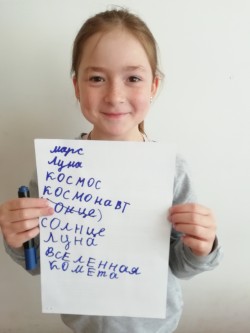 марс
Луна
КОСМОС
КОСМОНАВТ
ОНЦЕ)
СОЛНЦЕ
ЛУНА
ВСЕЛЕННАЯ
КОМЕТА